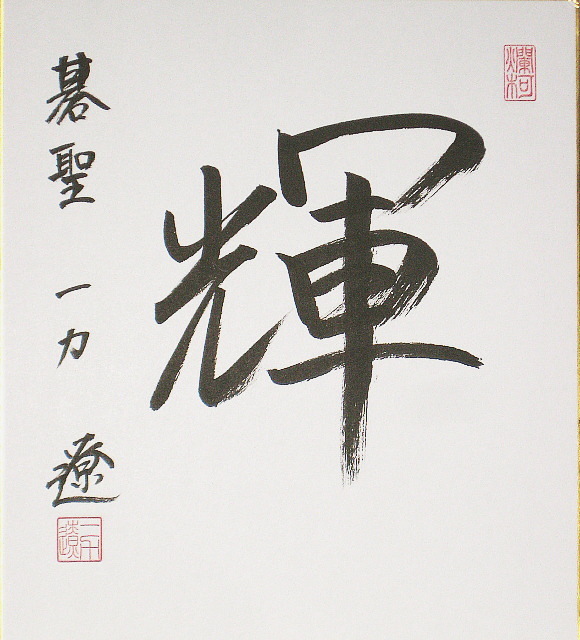 爛柯
輝
碁聖 一力 遼
一力遼